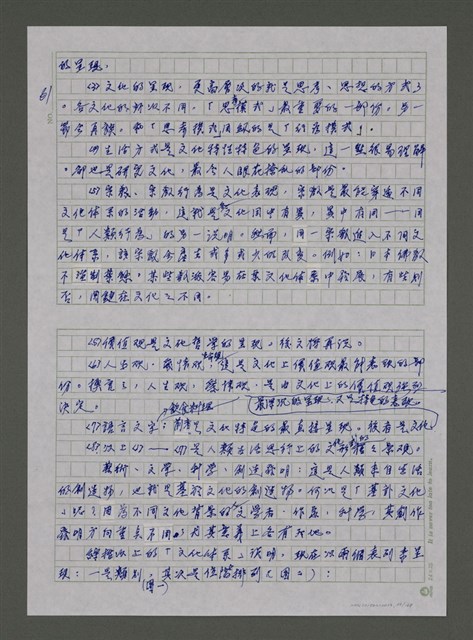 的呈現。
61
(3)文化的呈現，更高層次的就是思考、思想的方式了
。各文化的 不同。「思考模式」最重要的一部份，另一
「思考模式 的是「行為模式」。
(4)生活方式是文化特性特色的呈現，這一點很易理解
。卻也是研究文化，最令人眼花撩亂的部份。
(5)宗教、宗教行為是文化表現，宗教是最能穿透不同
文化體系的活動，這就是文化同中有異，異中有同——同
是「人類行為」的另一說明。然而，同一宗教進入不同文
化體系，該宗教會產生或多或少的改變。例如：日本佛教
不強制葷餘。某些教派容易在某文化體系中發展，有些則
否，關鍵在文化之不同。
(5)價值觀是文化哲學的呈現，後文將再說。
(6)人生觀、愛情觀，這是文化上價值觀最鮮表現的部
份。換言之，人生觀、愛情觀，是由文化上的價值觀
決定。
飲食料理 最深沉的呈現，又是特色的表現。
(7)語言文字：前者是文化特色的最直接呈現。後者是文化
(8)以上(1)——(7)是人類生活思行上的文 景觀。
藝術、文學、科學、創造發明：這是人類來自生活
的創造物，也就是基於文化的創造物。何以是「基於文化
」呢？因為不同文化背景的文學者、作品，科學，其創作
發明方向重點不同，因其意義上各有天地。
綜括以上的「文化體系」說明，現在以兩個表列來呈
現：一是類別，其次是位階排列（圖二）：
(圖一)